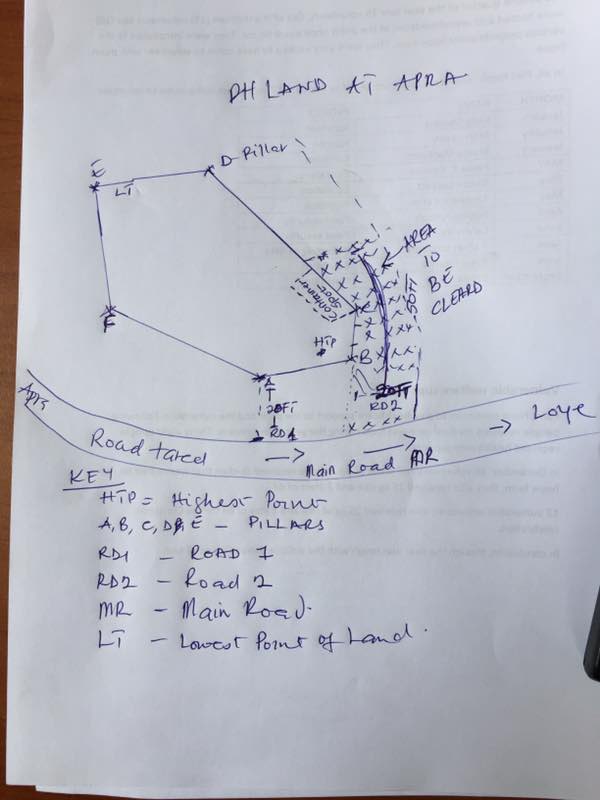 DH LAND AT APRA
E
LT
D-Pillar
AREA
TO
BE
CLEARD
Container
Spot
50FT
C
HTP
B
F
A
20FT
RD1
20FT
RD2
Apra
Road tared
Main Road MR
Loye
KEY
HTP = Highest Point
A, B, C, D, E – PILLARS
RD1 – ROAD 1
RD2 – Road 2
MR – Main Road.
LT – Lowest Point of Land.